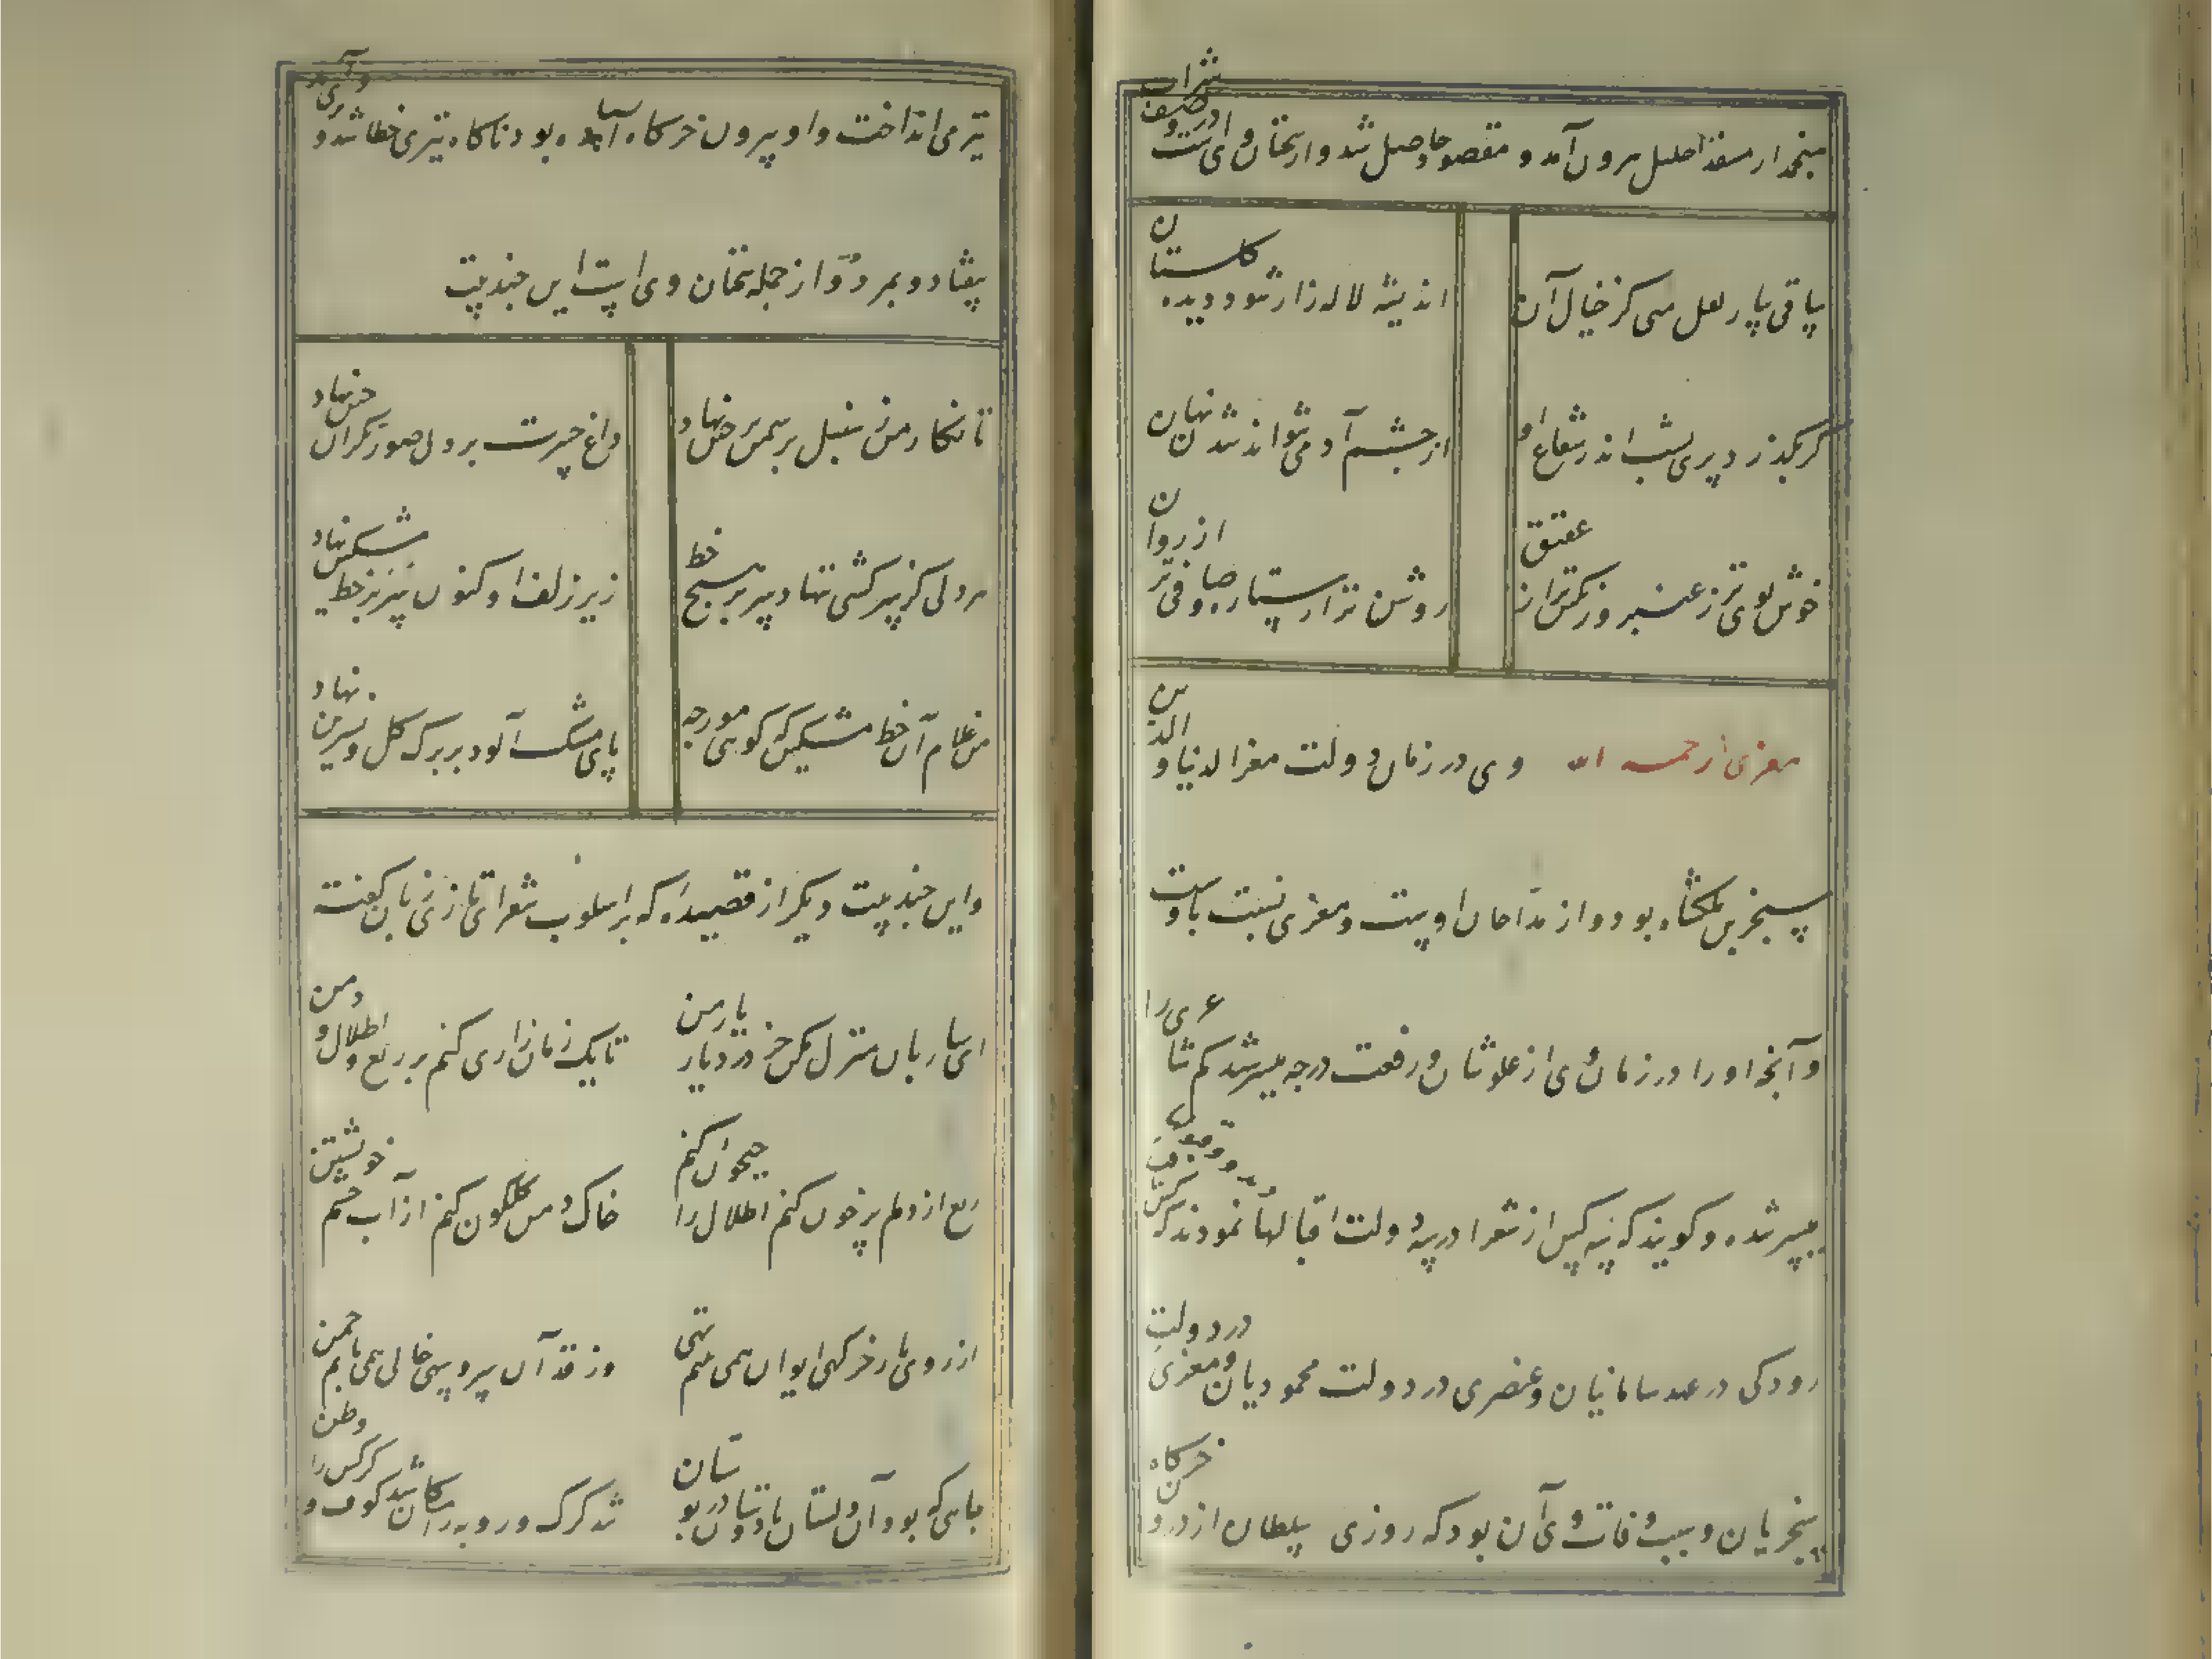 منجمد از منفذ احلیل بیرون آمد و مقصود حاصل شد و از سخنان وی است در وصف شراب
ساقی بیار لعل میی کز خیال آن
اندیشه لاله زار شود دیده گلستان
گر بگذرد پری بشب اندر شعاع او
از چشم آدمی نتواند شدن نهان
خوش بوی تر ز عنبر و رنگین تر از عقیق
روشن تر از ستاره و صافی تر از روان
معزی رحمه الله وی در زمان دولت معز الدنیا و الدین
سنجر بن ملکشاه بود و از مداحان اوست و معزی نسبت باوست
و آنچه او را در زمان وی از علو شان و رفعت درجه میسر شد کم شاعری را
میسر شده و گویند که سه کس از شعرا در سه دولت اقبالها نمودند که کس
رودکی در عهد سامانیان و عنصری در دولت محمودیان و معزی در دولت
سنجریان و سبب وفات وی آن بود که روزی سلطان از درون خرگاه
تیر می انداخت و او بیرون خرگاه ایستاده بود ناگاه تیری خطا شد و بر وی آمد
بیفتاد و بمرد و از جمله سخنان وی است این چند بیت
تا نگار من ز سنبل بر سمن پرچین نهاد
داغ حیرت بر دل صورتگران چین نهاد
هر دلی کز سرکشی ننهاد سر بر هیچ خط
زیر زلف او کنون سر بر خط مشکین نهاد
من غلام آن خط مشکین که گویی مورچه
پای مشک آلود بر برگ گل و نسرین نهاد
و این چند بیت دیگر از قصیده که بر اسلوب شعرای تازی زبان گفته
ای ساربان منزل مکن جز در دیار یار من
تا یک زمان زاری کنم بر ربع و اطلال و دمن
ربع از دلم پر خون کنم اطلال را جیحون کنم
خاک دمن گلگون کنم از آب چشم خویشتن
از روی یار خرگهی ایوان همی بینم تهی
وز قد آن سرو سهی خالی همی یابم چمن
جایی که بود آن دلستان با دوستان در بوستان
شد گرگ و روبه را مکان شد کوف و کرکس را وطن